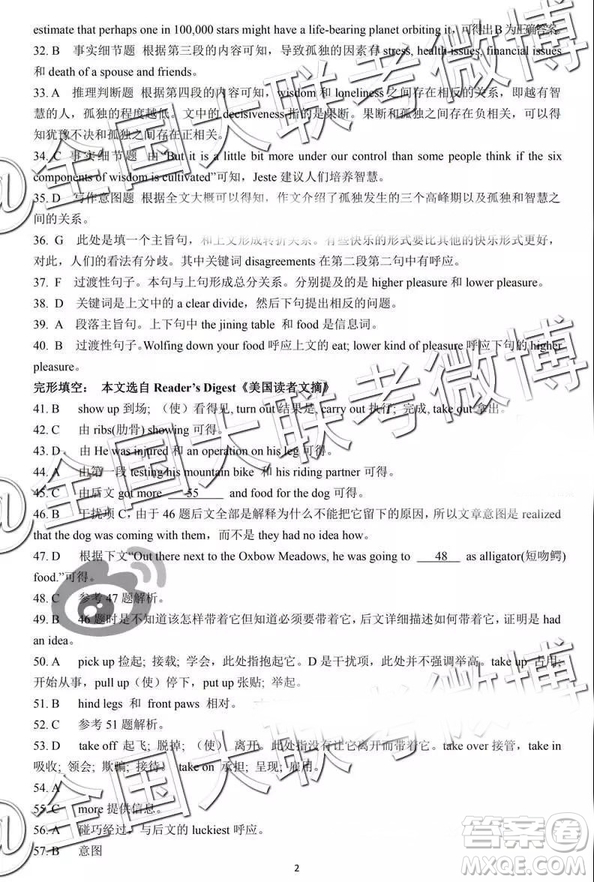 estimate that perhaps one in 100,000 stars might have a life-bearing planet orbiting it，可得出B为正确答案。
32. B 事实细节题 根据第三段的内容可知，导致孤独的因素有 stress, health issues, financial issues
和 death of a spouse and friends。
33. A 推理判断题 根据第四段的内容可知，wisdom 和 loneliness 之间存在相反的关系，即越有智
慧的人，孤独的程度越低。文中的 decisiveness 指的是果断。果断和孤独之间存在负相关，可以得
知犹豫不决和孤独之间存在正相关。
34. C 事实细节题 由“But it is a little bit more under our control than some people think if the six
components of wisdom is cultivated”可知，Jeste 建议人们培养智慧。
35. D 写作意图题 根据全文大概可以得知，作文介绍了孤独发生的三个高峰期以及孤独和智慧之
间的关系。
36. G 此处是填一个主旨句，和上文形成转折关系。有些快乐的形式要比其他的快乐形式更好，
对此，人们的看法有分歧。其中关键词 disagreements 在第二段第二句中有呼应。
37. F 过渡性句子。本句与上句形成总分关系。分别提及的是 higher pleasure 和 lower pleasure.
38. D 关键词是上文中的 a clear divide，然后下句提出相反的问题。
39. A 段落主旨句。上下句中 the jining table 和 food 是信息词。
40. B 过渡性句子。Wolfing down your food 呼应上文的 eat; lower kind of pleasure 呼应下句的 higher
pleasure.
完形填空： 本文选自 Reader’s Digest《美国读者文摘》
41. B show up 到场;（使）看得见, turn out 结果是, carry out 执行; 完成, take out 拿出.
42. C 由 ribs(肋骨) showing 可得。
43. D 由 He was injured 和 an operation on his leg 可得。
44. A 由第一段 testing his mountain bike 和 his riding partner 可得。
45. C 由后文 got more 55 and food for the dog 可得。
46. B 干扰项 C，由于 46 题后文全部是解释为什么不能把它放在那里的原因，所以文章意图是 realized
that the dog was coming with them，而不是 they had no idea how.
47. D 根据下文“Out there next to the Oxbow Meadows, he was going to 48 as alligator(短吻鳄)
food.”可得.
48. C 参考 47 题解析。
49. B 46 题是不知道该怎样带着它但知道必须要带着它，后文详细描述了如何带着它，证明是 had
an idea.
50. A pick up 捡起; 接载; 学会，此处指抱起它。D 是干扰项，此处并不强调举高。take up 占用;
开始从事, pull up（使）停下, put up 张贴; 举起。
51. B hind legs 和 front paws 相对。
52. C 参考 51 题解析。
53. D take off 起飞; 脱掉;（使）离开。此处指没有让它离开而带着它。take over 接管，take in
吸收; 领会; 欺骗; 接待） take on 承担; 呈现; 雇用。
54. A
55. C more 提供信息。
56. A 碰巧经过，与后文的 luckiest 呼应。
57. B 意图
2
@全国大联考微博
@全国大联考微博
@全国大联考微博
答案圈
MXQE.COM